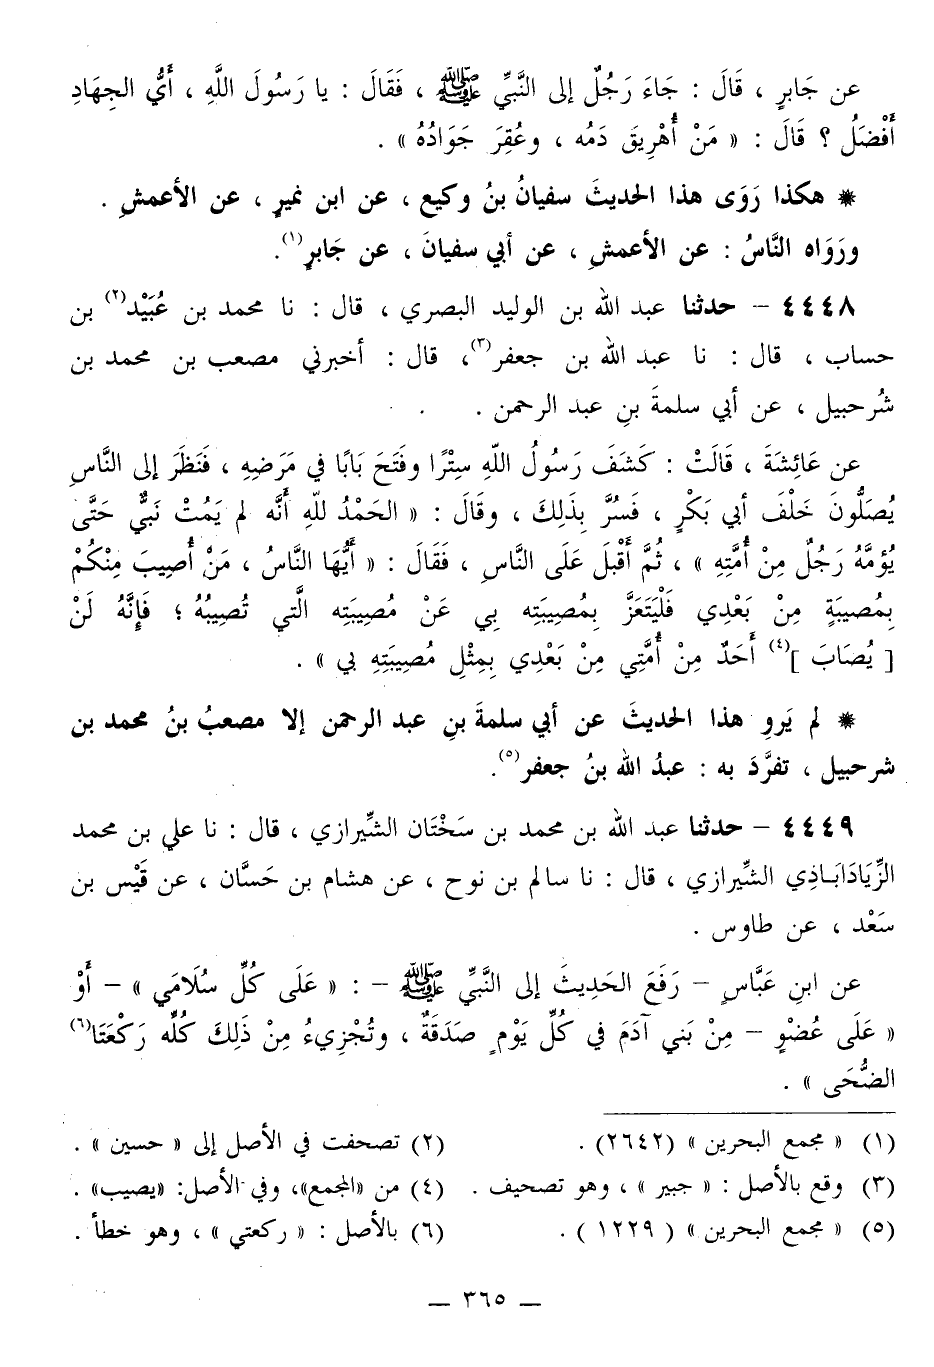 عن جَابرٍ ، قَالَ : جَاءَ رَجُلٌ إلى النَّبيِّ ﷺ ، فَقَالَ : يا رَسُولَ اللَّهِ ، أَيُّ الجِهَادِ
أَفْضَلُ ؟ قَالَ : « مَنْ أُهْرِيقَ دَمُه ، وعُقِرَ جَوَادُهُ » .
* هكذا رَوَى هذا الحديثَ سفيانُ بنُ وكيع ، عن ابن نميرٍ ، عن الأعمشِ .
ورَوَاه النَّاسُ : عن الأعمشِ ، عن أبي سفيانَ ، عن جَابرٍ(١).
٤٤٤٨ – حدثنا عبد الله بن الوليد البصري ، قال : نا محمد بن عُبَيْد(٢) بن
حساب ، قال : نا عبد الله بن جعفر(٣)، قال : أخبرني مصعب بن محمد بن
شُرحبيل ، عن أبي سلمةَ بنِ عبد الرحمن .
عن عَائِشَةَ ، قَالَتْ : كَشَفَ رَسُولُ اللهِ سِتْرًا وفَتَحَ بَابًا في مَرَضِهِ ، فَنَظَرَ إلى النَّاسِ
يُصَلُّونَ خَلْفَ أبي بَكْرٍ ، فَسُرَّ بِذَلِكَ ، وقَالَ : « الحَمْدُ للهِ أنَّه لم يَمُتْ نَبيٌّ حَتَّى
يُؤمَّهُ رَجُلٌ مِنْ أُمَّتِهِ » ، ثُمَّ أقْبَلَ عَلَى النَّاسِ ، فَقَالَ : « أَيُّهَا النَّاسُ ، مَنْ أُصِيبَ مِنْكُمْ
بِمُصيبَةٍ مِنْ بَعْدِي فَلْيَتَعَزَّ بِمُصِيبَتِه بي عَنْ مُصِيبَتِه الَّتي تُصِيبُهُ ؛ فَإِنَّهُ لَنْ
[ يُصَابَ ](٤) أَحَدٌ مِنْ أُمَّتِي مِنْ بَعْدِي بِمِثْلِ مُصِيبَتِهِ بي » .
* لم يَروِ هذا الحديثَ عن أبي سلمةَ بنِ عبد الرحمن إلا مصعبُ بنُ محمد بن
شرحبيل ، تفرَّدَ به : عبدُ الله بنُ جعفر(٥).
٤٤٤٩ – حدثنا عبد الله بن محمد بن سَخْتَان الشِّيرازي ، قال : نا علي بن محمد
الزِّيَادَابَاذِي الشِّيرازي ، قال : نا سالم بن نوح ، عن هشام بن حَسَّان ، عن قَيْس بن
سَعْد ، عن طاوس .
عن ابنِ عَبَّاسٍ – رَفَعَ الحَدِيثَ إلى النَّبيِّ ﷺ – : « عَلَى كُلِّ سُلَامَي » – أَوْ
« عَلَى عُضْوٍ – مِنْ بَني آدَمَ في كُلِّ يَوْمٍ صَدَقَةٌ ، وتُجْزِيءُ مِنْ ذَلِكَ كُلِّه رَكْعَتَا(٦)
الضُّحَى » .
(١) « مجمع البحرين » (٢٦٤٢) . (٢) تصحفت في الأصل إلى « حسين » .
(٣) وقع بالأصل : « جبير » ، وهو تصحيف . (٤) من «المجمع»، وفي الأصل: «يصيب» .
(٥) « مجمع البحرين » ( ١٢٢٩ ) . (٦) بالأصل : « ركعتي » ، وهو خطأ .
— ٣٦٥ —